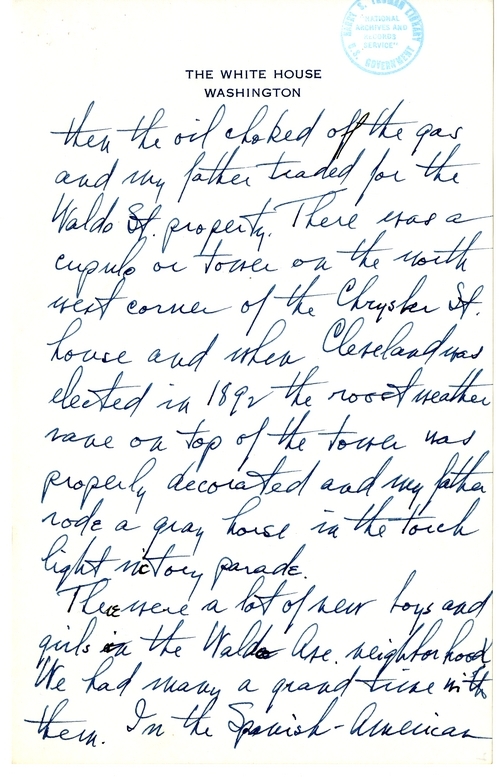 HARRY S. TRUMAN LIBRARY
"NATIONAL
ARCHIVES AND
RECORDS
SERVICE"
U.S. GOVERNMENT
THE WHITE HOUSE
WASHINGTON
then the oil choked off the gas
and my father traded for the
Waldo St. property. There was a
cupulo or tower on the north
west corner of the Chrysler St.
house and when Cleveland was
elected in 1892 the roost weather
vane on top of the tower was
properly decorated and my father
rode a gray horse in the torch
light victory parade.
There were a lot of new boys and
girls in the Waldo Ave. neighborhood
We had many a grand time with
them. In the Spanish-American